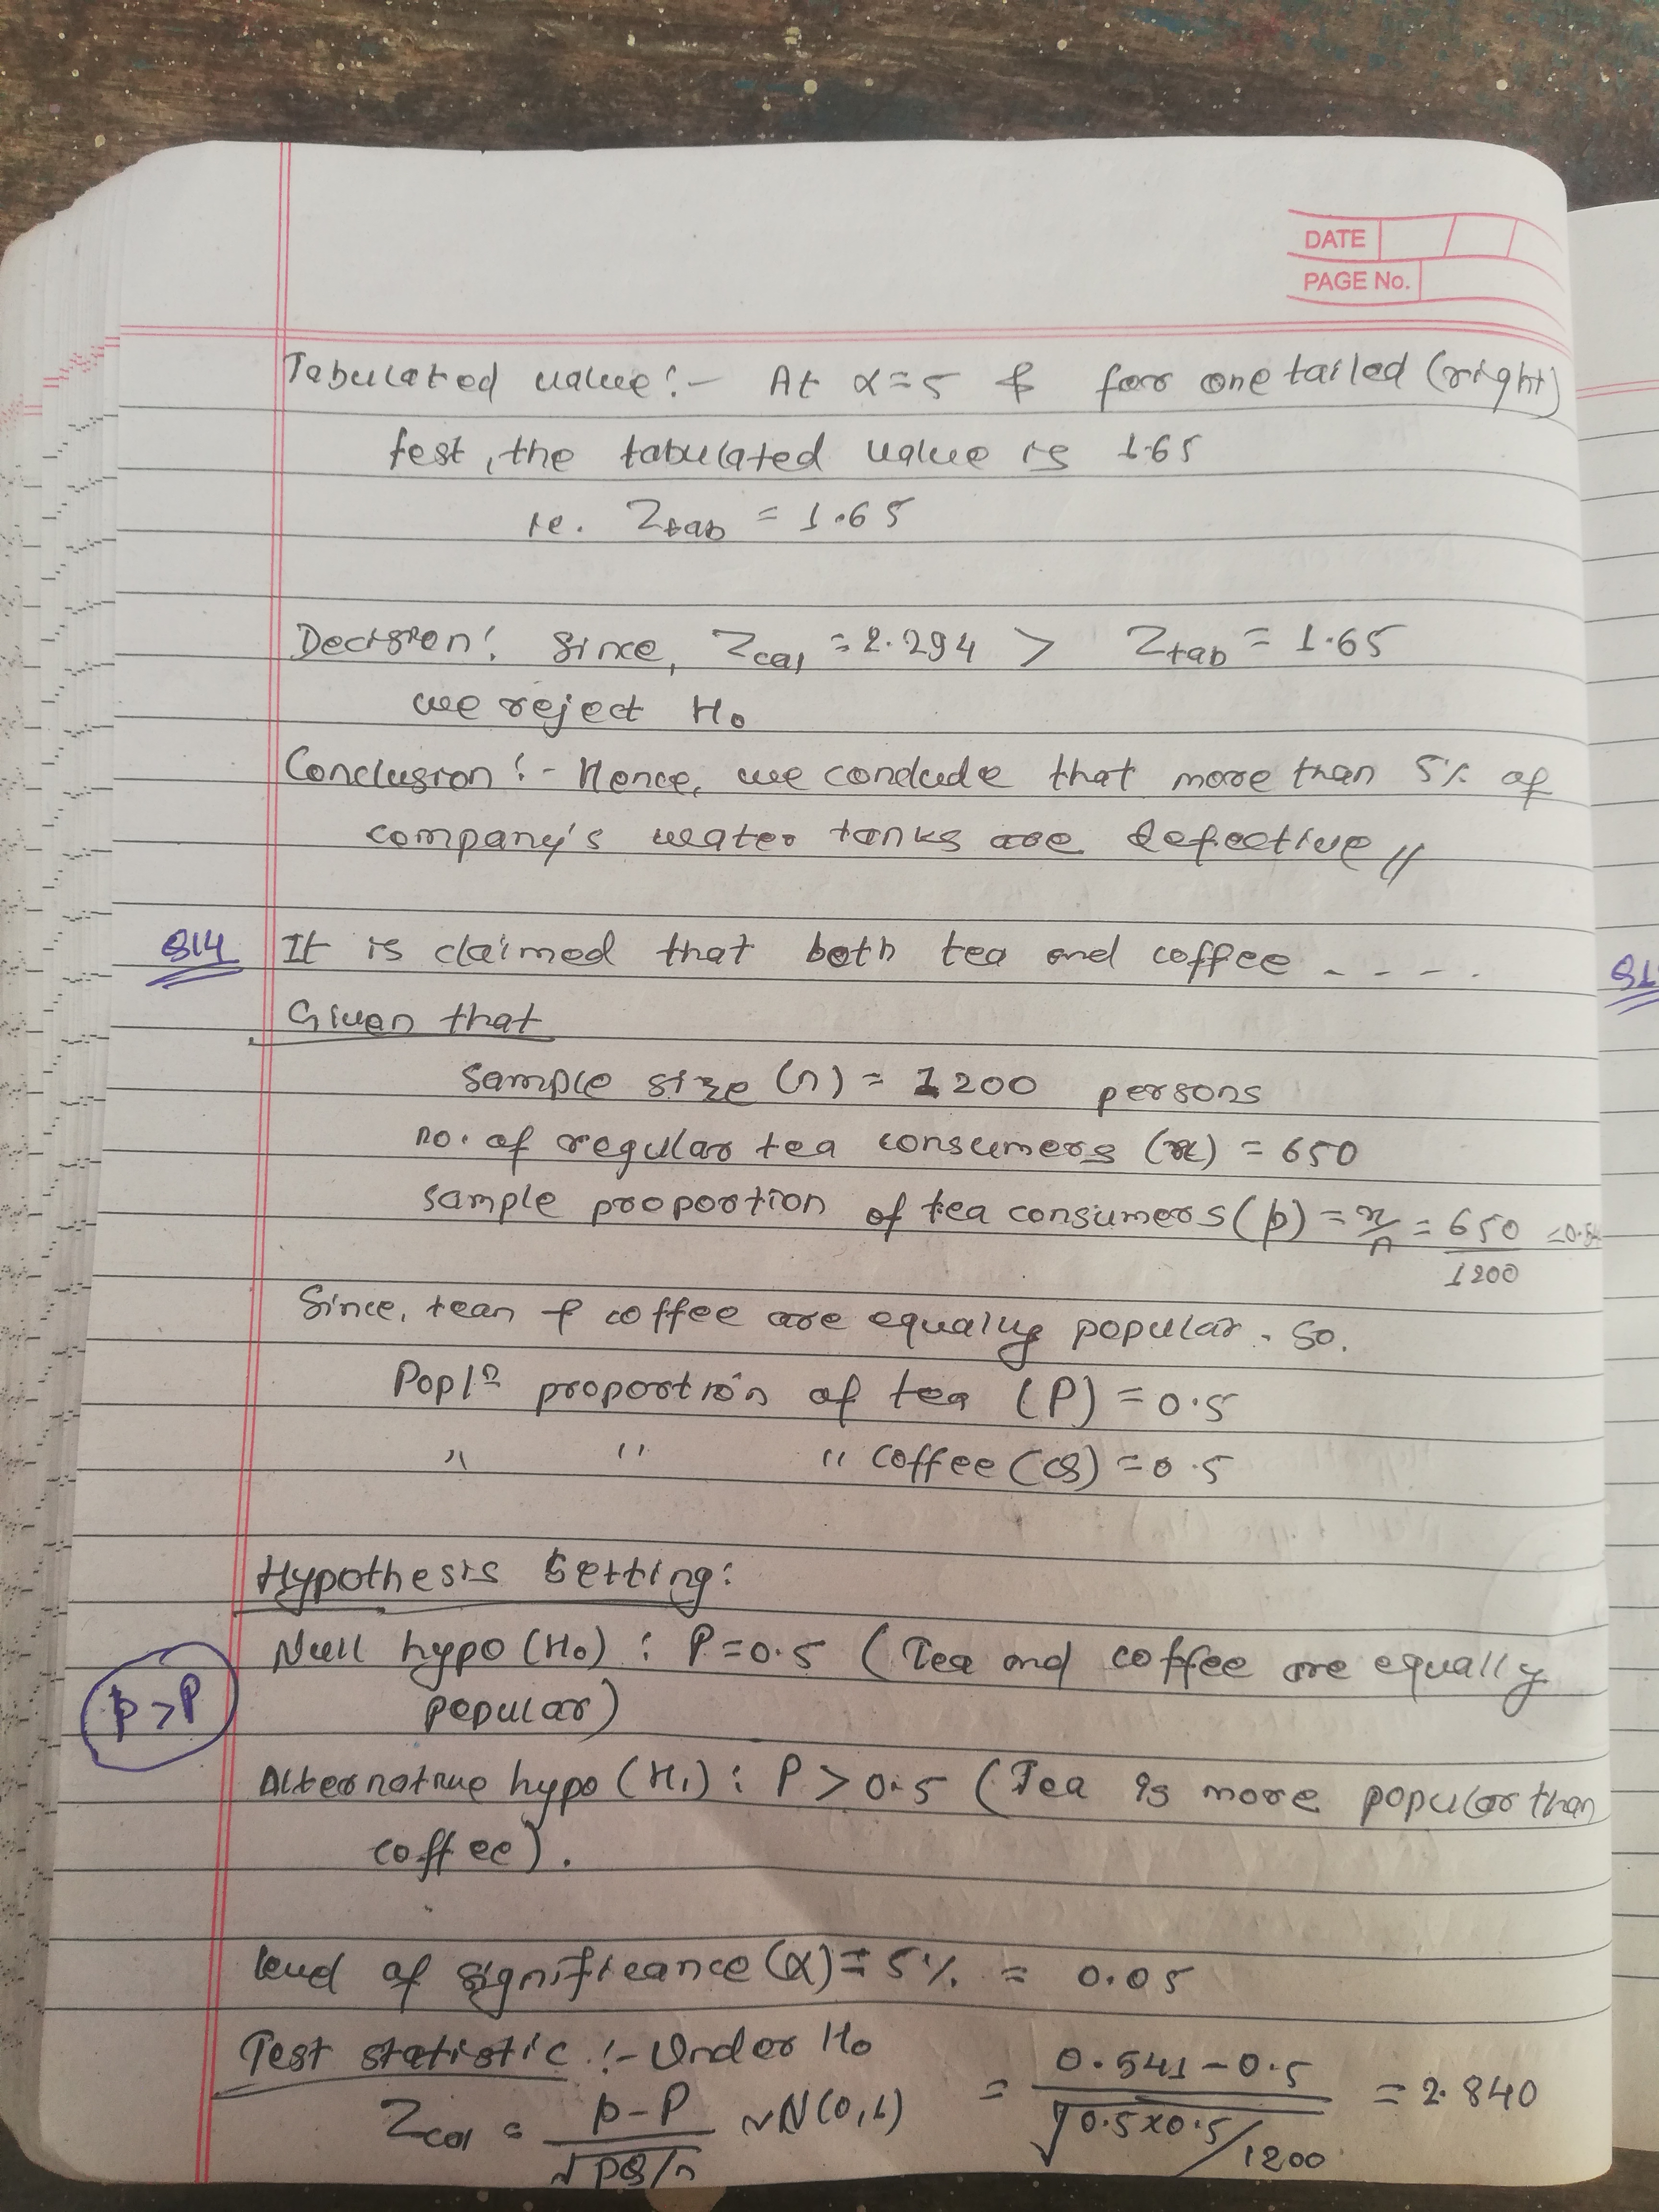 DATE
PAGE No.
Tabulated value :- At α=5 & for one tailed (right)
test, the tabulated value is 1.65
ie. Ztab = 1.65
Decision: Since, Zcal = 2.294 > Ztab = 1.65
we reject H₀
Conclusion :- Hence, we conclude that more than 5% of
company's water tanks are defective //
Q14 It is claimed that both tea and coffee - - - -
Given that
Sample size (n) = 1200 persons
no. of regular tea consumers (x) = 650
sample proportion of tea consumers (p) = x/n = 650/1200
Since, tean & coffee are equally popular. So.
Poplⁿ proportion of tea (P) = 0.5
" " " coffee (Q) = 0.5
Hypothesis Setting:
Null hypo (H₀) : P=0.5 (Tea and coffee are equally
popular)
p>P
Alternative hypo (H₁) : P > 0.5 (Tea is more popular than
coffee).
level of significance (α) = 5% = 0.05
Test statistic :- Under H₀
Zcal = p-P/√PQ/n ~N(0,1) = 0.541-0.5/√0.5x0.5/1200 = 2.840